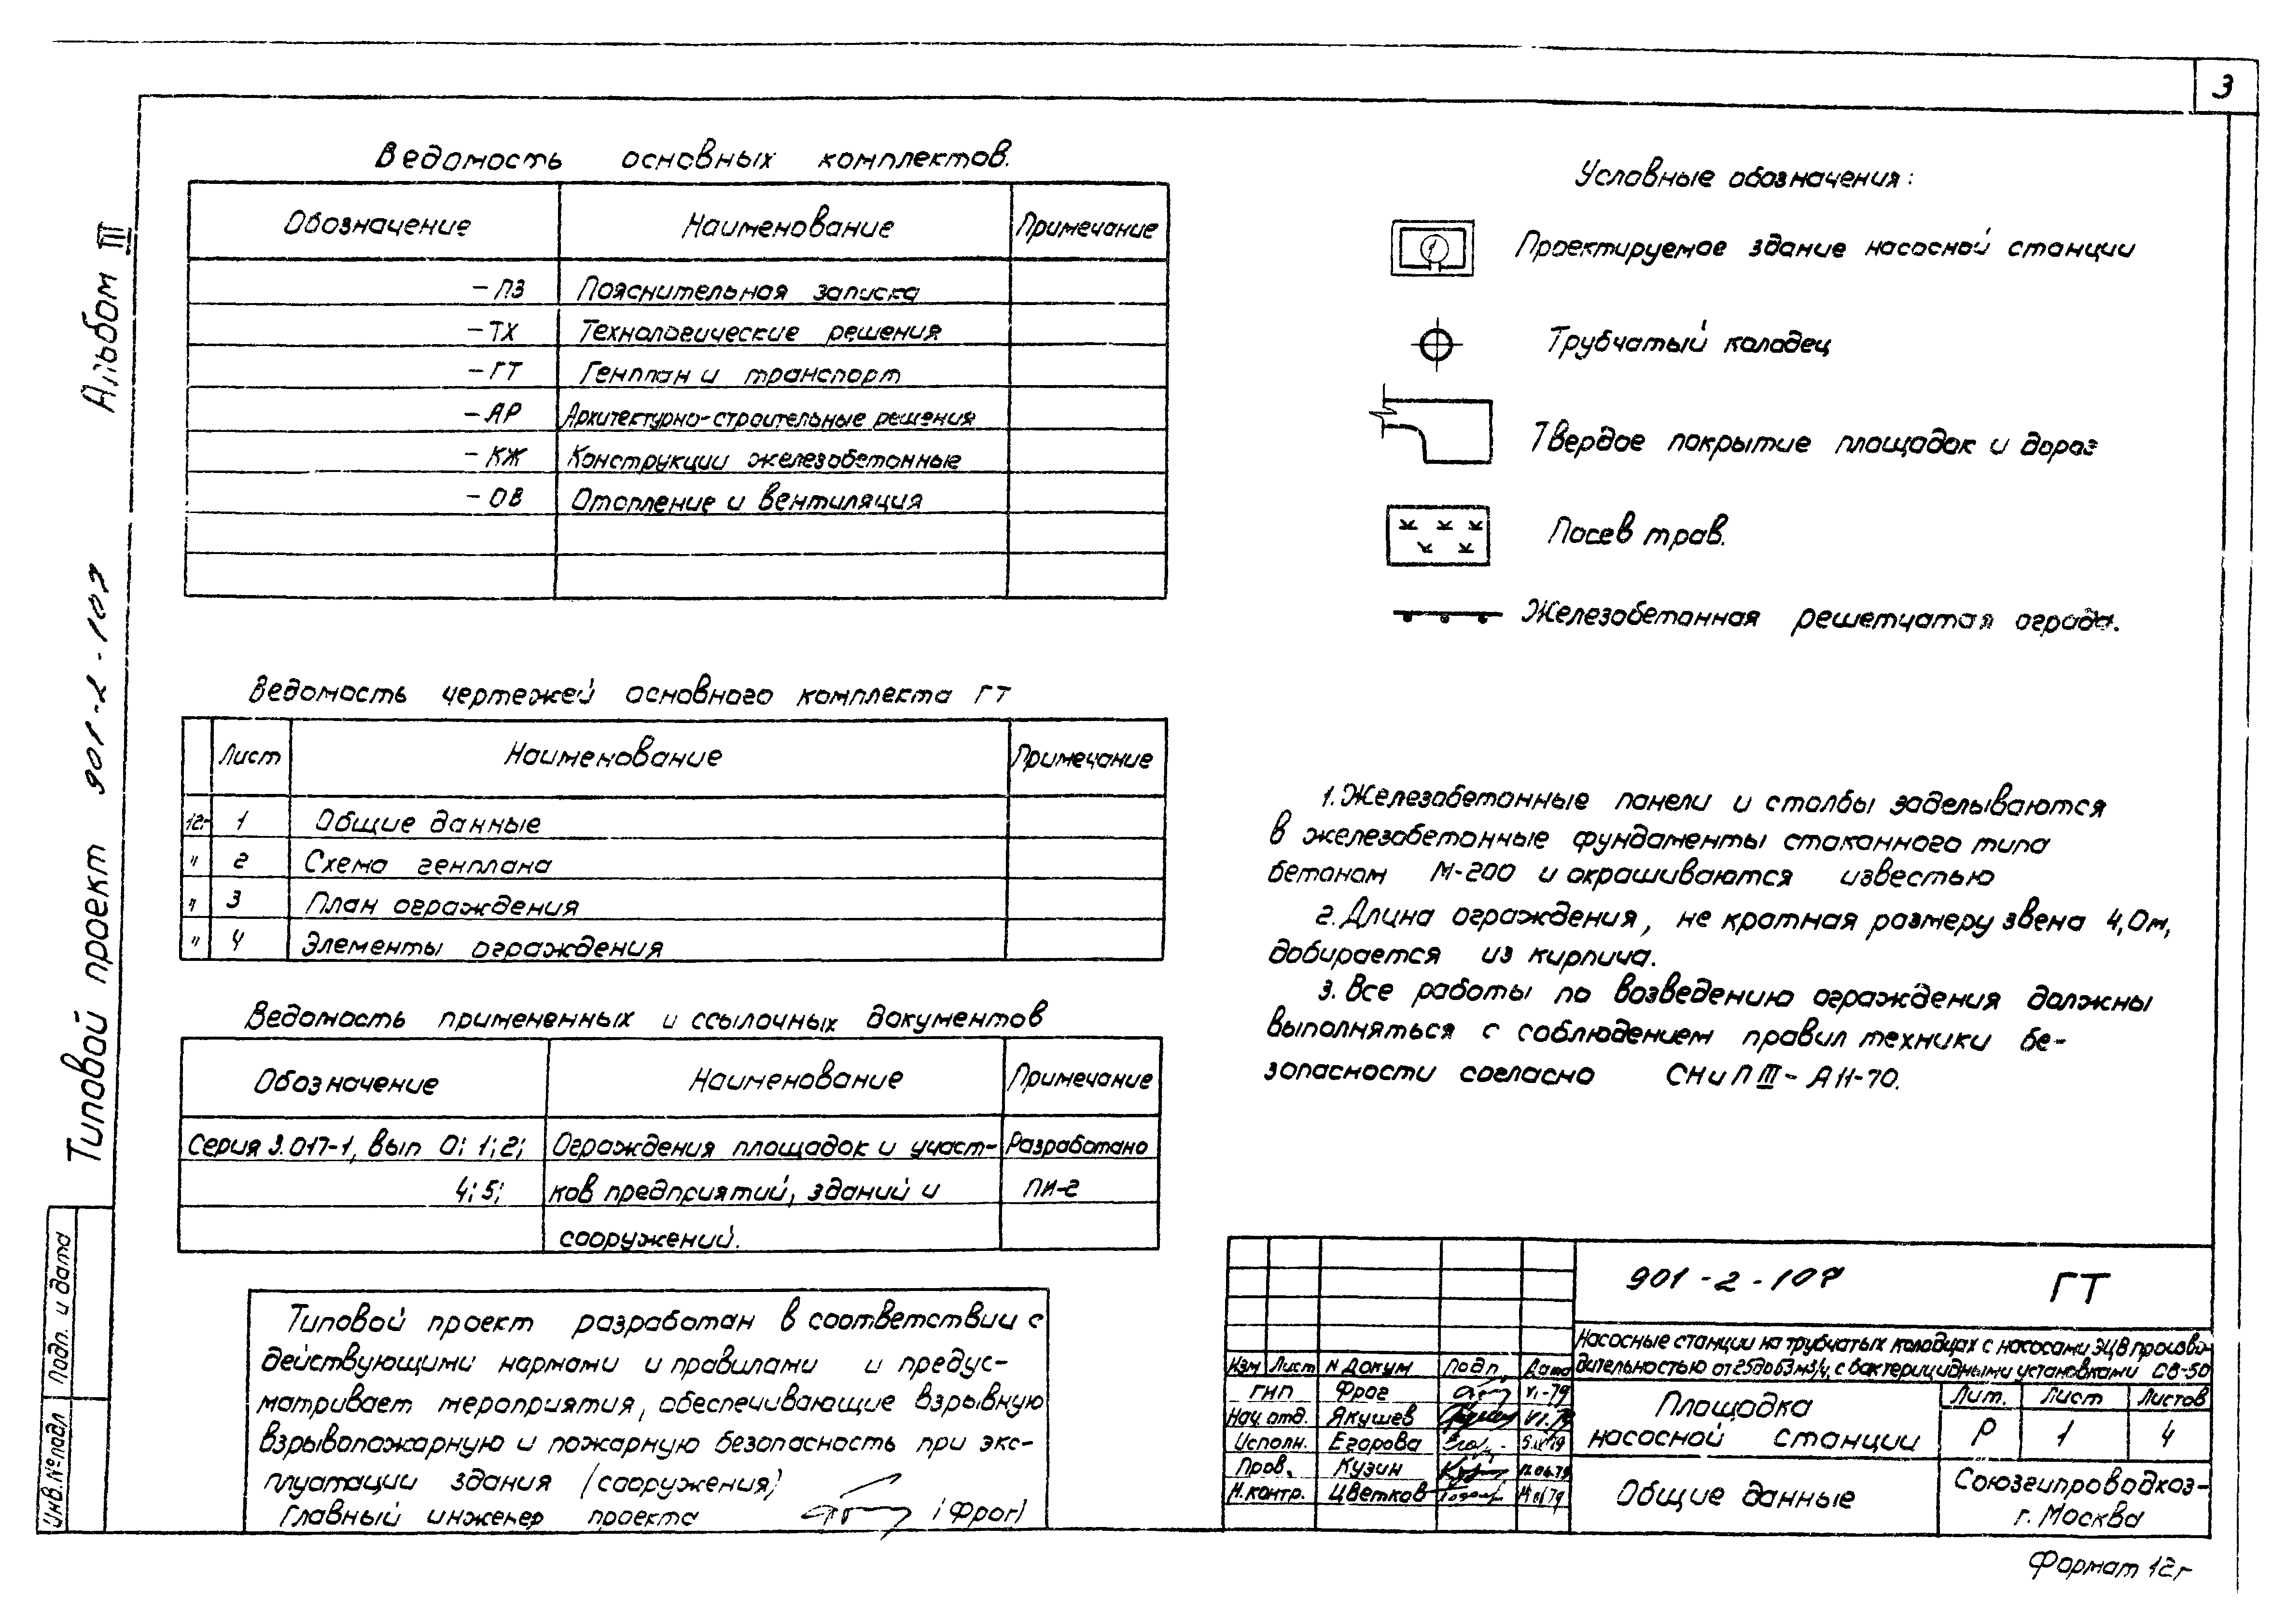 3
Альбом III
Типовой проект 901-2-107
Ведомость основных комплектов.
Обозначение Наименование Примечание
-ПЗ Пояснительная записка
-ТХ Технологические решения
-ГТ Генплан и транспорт
-АР Архитектурно-строительные решения
-КЖ Конструкции железобетонные
-ОВ Отопление и вентиляция
Ведомость чертежей основного комплекта ГТ
Лист Наименование Примечание
12г 1 Общие данные
" 2 Схема генплана
" 3 План ограждения
" 4 Элементы ограждения
Ведомость примененных и ссылочных документов
Обозначение Наименование Примечание
Серия 3.017-1, вып 0; 1; 2; Ограждения площадок и участ- Разработано
4; 5; ков предприятий, зданий и ПИ-2
сооружений.
Типовой проект разработан в соответствии с
действующими нормами и правилами и предус-
матривает мероприятия, обеспечивающие взрывную
взрывопожарную и пожарную безопасность при экс-
плуатации здания (сооружения)
Главный инженер проекта (Фрог)
Условные обозначения:
1
Проектируемое здание насосной станции
Трубчатый колодец
Твердое покрытие площадок и дорог
Посев трав.
Железобетонная решетчатая ограда.
1. Железобетонные панели и столбы заделываются
в железобетонные фундаменты стаканного типа
бетоном М-200 и окрашиваются известью
2. Длина ограждения, не кратная размеру звена 4,0м,
добирается из кирпича.
3. Все работы по возведению ограждения должны
выполняться с соблюдением правил техники бе-
зопасности согласно СНиП III-А 11-70.
901-2-107 ГТ
Насосные станции на трубчатых колодцах с насосами ЭЦВ произво-
дительностью от 25 до 63 м3/ч, с бактерицидными установками ОВ-50
Изм Лист N Докум Подп. Дата
ГИП Фрог VI-79
Нач. отд. Якушев VI.79
Исполн. Егорова
Пров. Кузин 12.06.79
Н.контр. Цветков
Площадка
насосной станции
Лит. Лист Листов
Р 1 4
Общие данные
Союзгипроводхоз-
г. Москва
Формат 12г
Подп. и дата
Инв. № подл